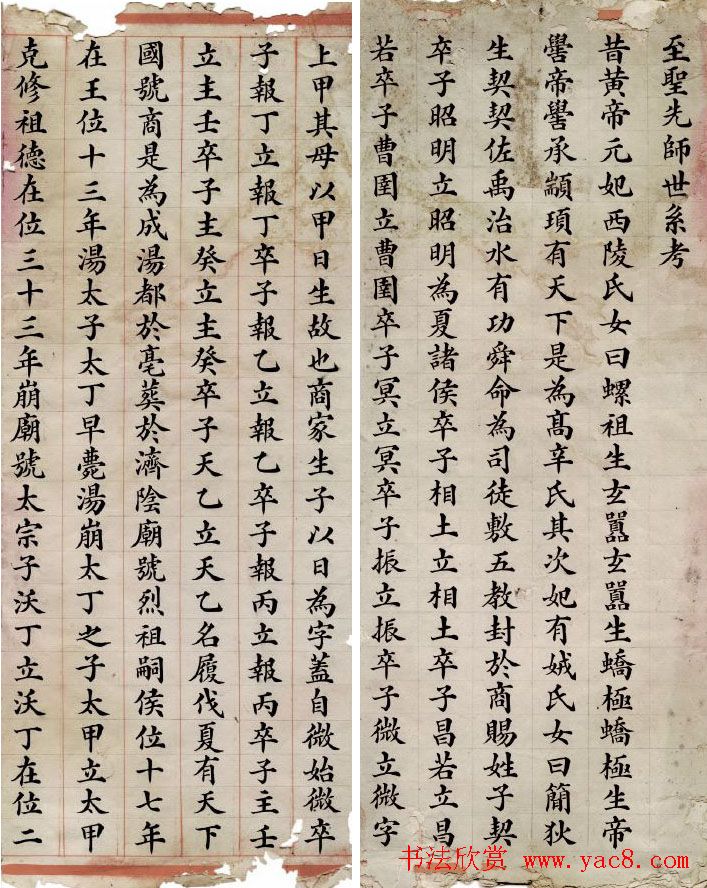 至聖先師世系考
昔黃帝元妃西陵氏女曰螺祖生玄囂玄囂生蟜極蟜極生帝
嚳帝嚳承顓頊有天下是為髙辛氏其次妃有娀氏女曰簡狄
生契契佐禹治水有功舜命為司徒敷五教封於商賜姓子契
卒子昭明立昭明為夏諸侯卒子相土立相土卒子昌若立昌
若卒子曹圉立曹圉卒子冥立冥卒子振立振卒子微立微字
上甲其母以甲日生故也商家生子以日為字蓋自微始微卒
子報丁立報丁卒子報乙立報乙卒子報丙立報丙卒子主壬
立主壬卒子主癸立主癸卒子天乙立天乙名履伐夏有天下
國號商是為成湯都於亳葬於濟陰廟號烈祖嗣侯位十七年
在王位十三年湯太子太丁早薨湯崩太丁之子太甲立太甲
克修祖德在位三十三年崩廟號太宗子沃丁立沃丁在位二
书法欣赏 www.yac8.com